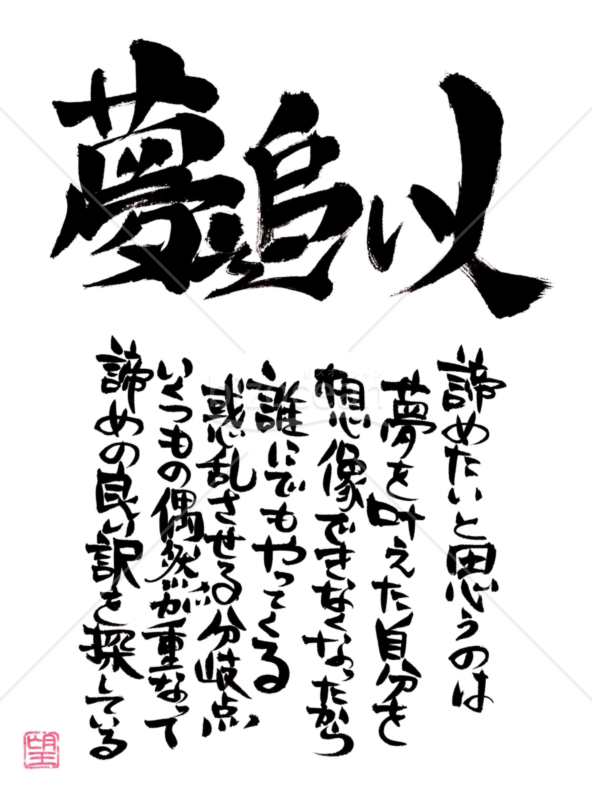 夢追い人
諦めたいと思うのは
夢を叶えた自分を
想像できなくなったから
誰にでもやってくる
惑乱させる分岐点
いくつもの偶然が重なって
諦めの良い訳を探している
望